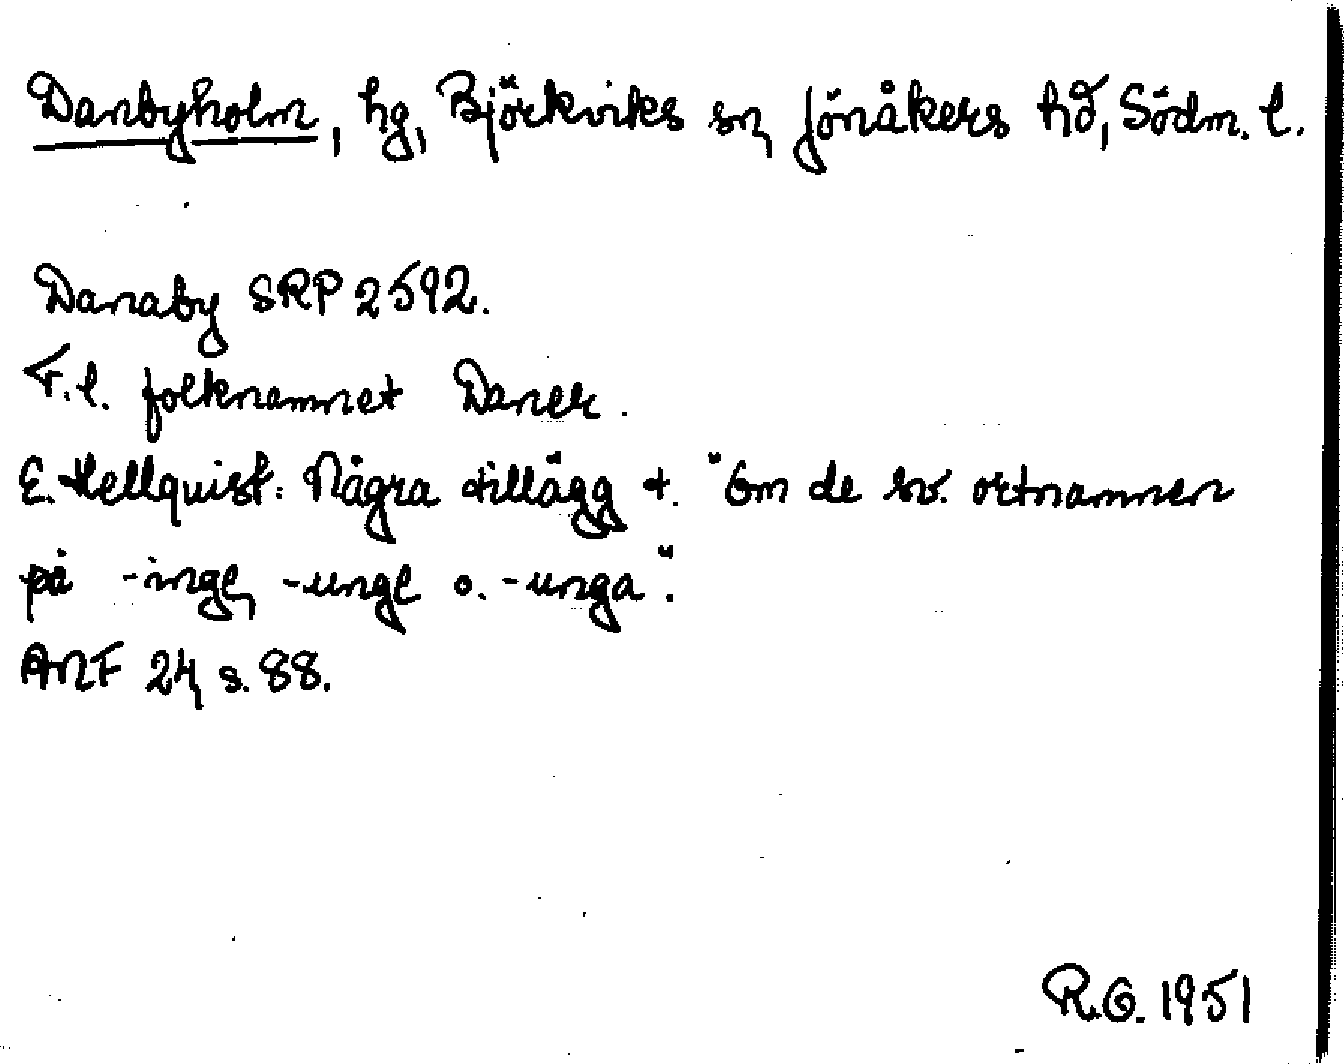 Danbyholm, hg, Björkviks sn, Jönåkers hd, Södm. l.
Danaby SRP 2592.
T.l. folknamnet Daner.
E. Hellquist: Några tillägg t. "Om de sv. ortnamnen
på -inge, -unge o. -unga".
ANF 24, s. 88.
R.G. 1951